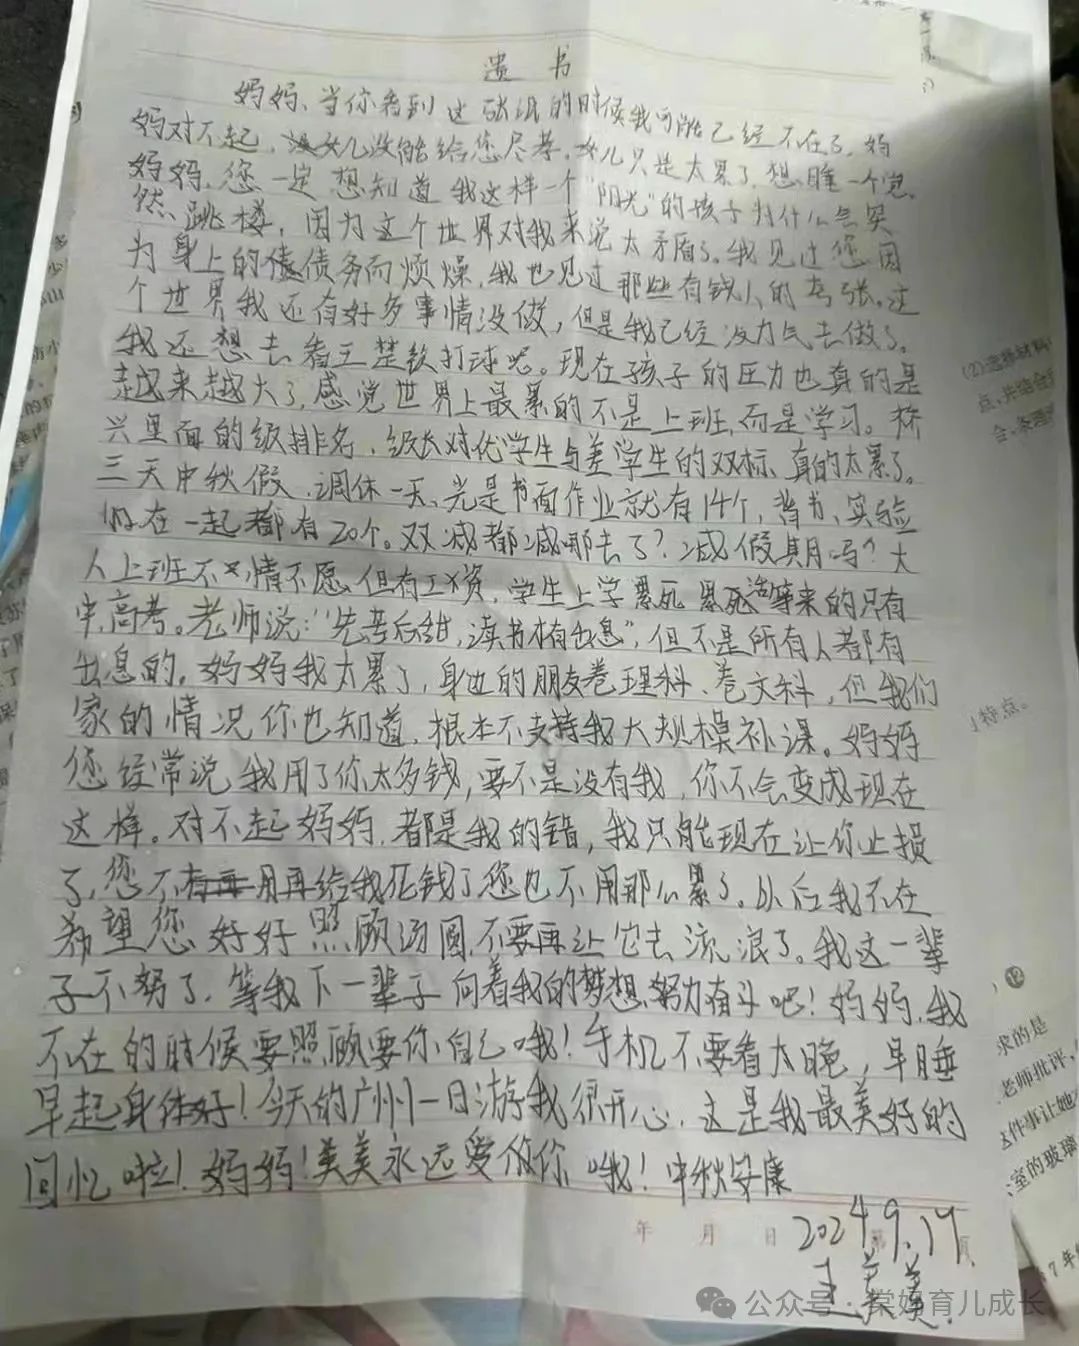 遗书
妈妈、当你看到这张纸的时候我可能已经不在了,妈
妈对不起,女儿没能给您尽孝,女儿只是太累了,想睡一个觉,
妈妈,您一定想知道我这样一个"阳光"的孩子为什么会突
然跳楼,因为这个世界对我来说太矛盾了。我见过您因
为身上的债务而烦燥,我也见过那些有钱人的夸张。这
个世界我还有好多事情没做,但是我已经没力气去做了。
我还想去看王楚钦打球呢。现在孩子的压力也真的是
越来越大了,感觉世界上最累的不是上班,而是学习。桥
兴里面的级排名,级长对优学生与差学生的双标、真的太累了。
三天中秋假,调休一天,光是书面作业就有14个,背书、实验
加在一起都有20个。双减都减哪去了?减假期吗?大
人上班不情不愿,但有工资,学生上学累死累死活等来的只有
中,高考。老师说:"先苦后甜,读书才有出息",但不是所有人都有
出息的。妈妈我太累了,身边的朋友卷理科、卷文科,但我们
家的情况你也知道,根本不支持我大规模补课。妈妈
您经常说我用了你太多钱,要不是没有我,你不会变成现在
这样。对不起妈妈,都是我的错,我只能现在让你止损
了,您不用再给我花钱了您也不用那么累了。以后我不在
希望您好好照顾汤圆,不要再让它去流浪了。我这一辈
子不努了,等我下一辈子向着我的梦想努力奋斗吧!妈妈,我
不在的时候要照顾要你自己哦!手机不要看太晚,早睡
早起身体好!今天的广州一日游我很开心,这是我最美好的
回忆啦!妈妈!美美永远爱你哦!中秋安康
年 月 日 第 页
2024 9.17
王美美
(2)选择材料
点,并结合
特点。
求的是
老师批评,
这件事让她
室的玻璃
7年
公众号·棠妈育儿成长